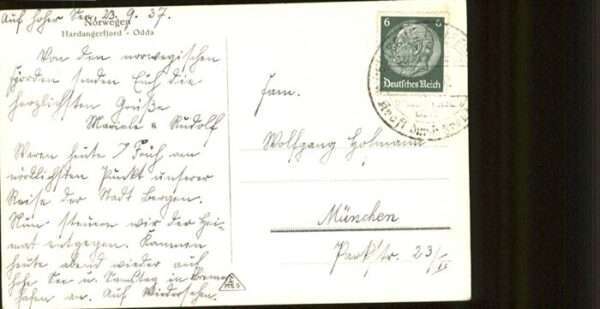 Auf hoher See, 23. 9. 37.
Norwegen
Hardangerfjord - Odda
Von den norwegischen
Fjorden senden Euch die
herzlichsten Grüße
Mariele u Rudolf
Waren heute Früh am
nördlichsten Punkt unserer
Reise der Stadt Bergen.
Nun steuern wir der Hei-
mat entgegen. Kommen
heute abend wieder auf
hohe See u. Samstag in Bremer-
hafen an. Auf Wiedersehen.
6 6
Deutsches Reich
Kraft durch
Fam.
Wolfgang Hofmann
München
Parkstr. 23/